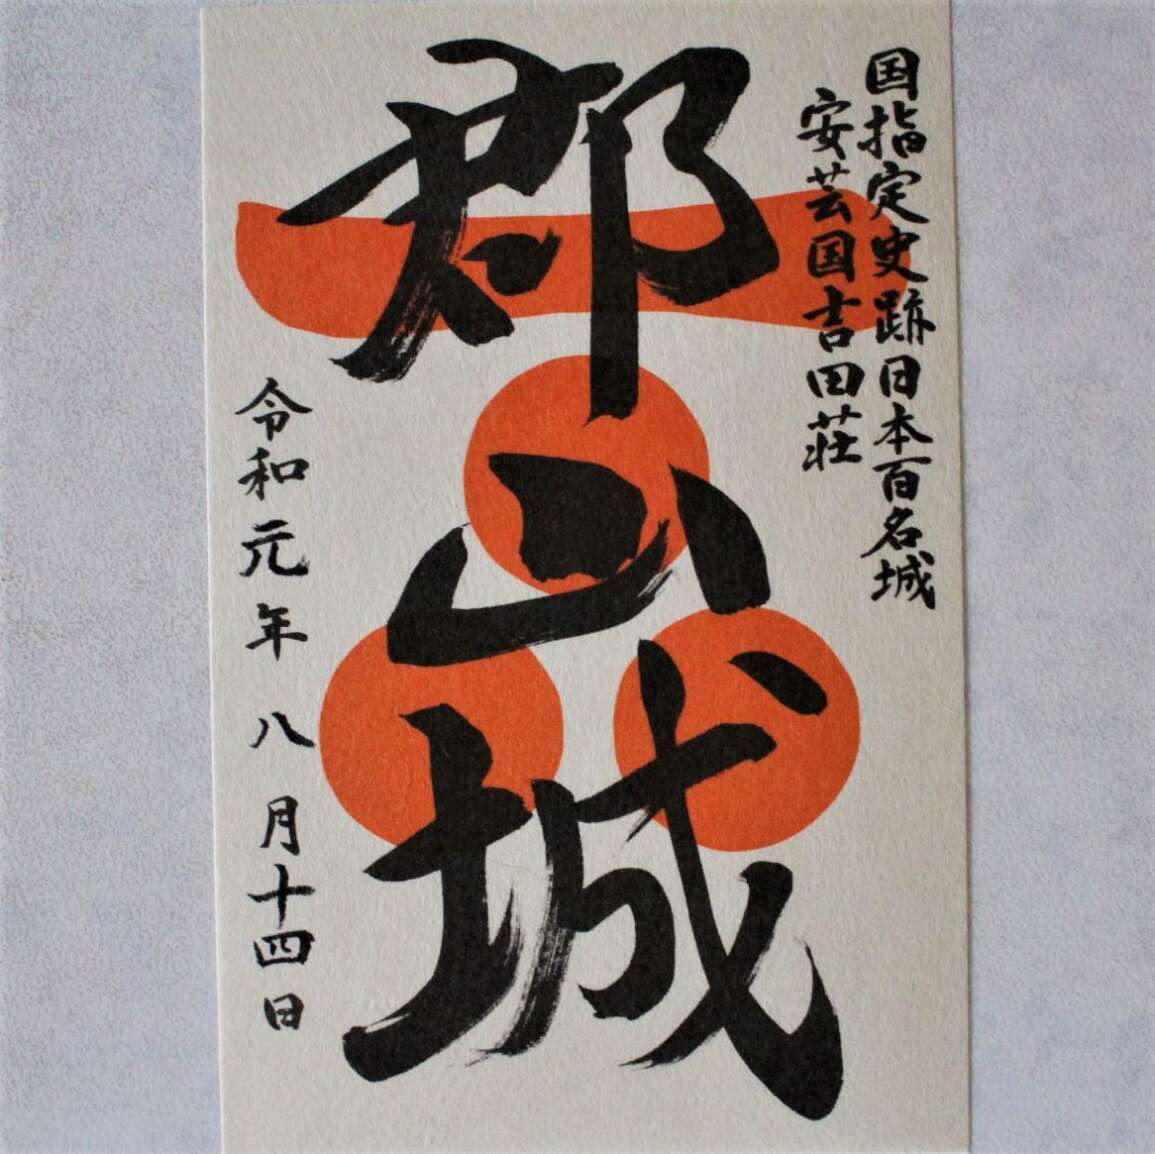 国指定史跡日本百名城
安芸国吉田荘
郡山城
令和元年八月十四日